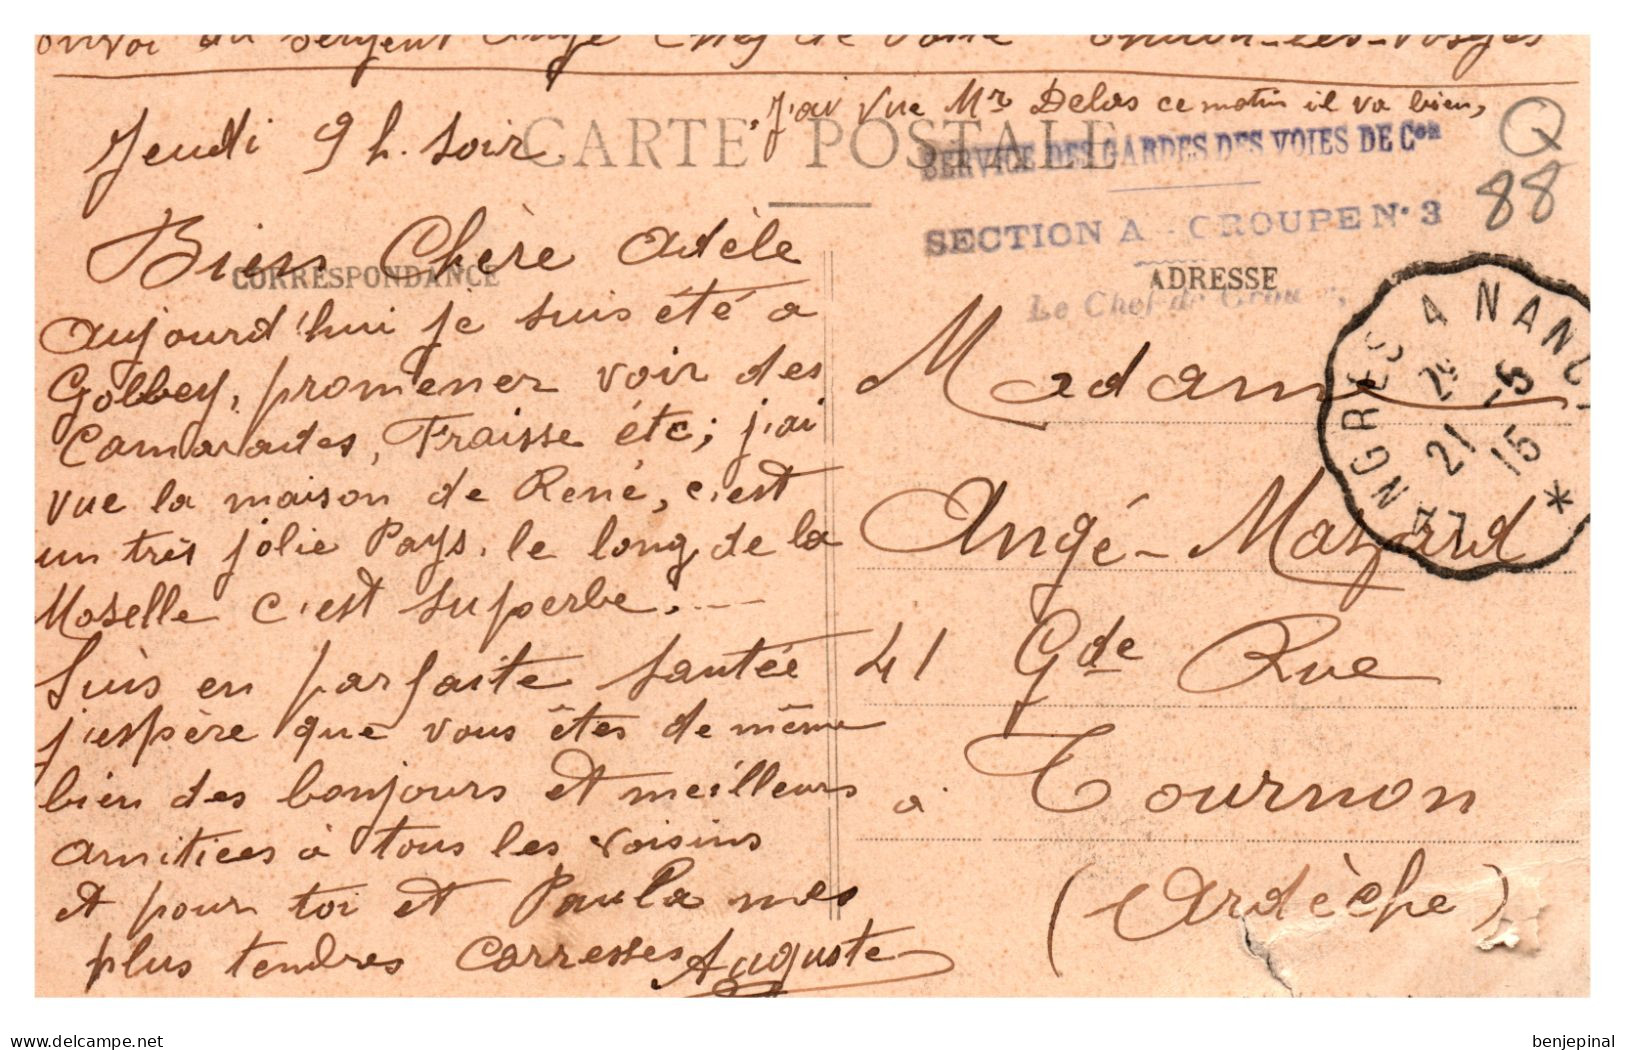 envoi du Sergent Angé Chef de Poste Thaon-les-Vosges
J'ai vue Mr Delas ce matin il va bien,
Jeudi 9 h. soir
CARTE POSTALE
SERVICE DES GARDES DES VOIES DE Con
SECTION A - GROUPE N° 3
Q
88
Bien Chère Adèle
CORRESPONDANCE
ADRESSE
Le Chef de Groupe,
LANGRES A NANCY
21 -5
15
*
aujourd'hui je suis été a
Golbey, promener voir des
Camarades, Fraisse étc; j'ai
vue la maison de René, c'est
un très jolie Pays, le long de la
Moselle c'est superbe.
Suis en parfaite santée
j'espère que vous êtes de même
bien des bonjours et meilleurs
amitiées à tous les voisins
et pour toi et Paula mes
plus tendres Carresses Auguste
Madame
Angé-Mazard
41 Gde Rue
à Tournon
(Ardèche)
www.delcampe.net
benjepinal